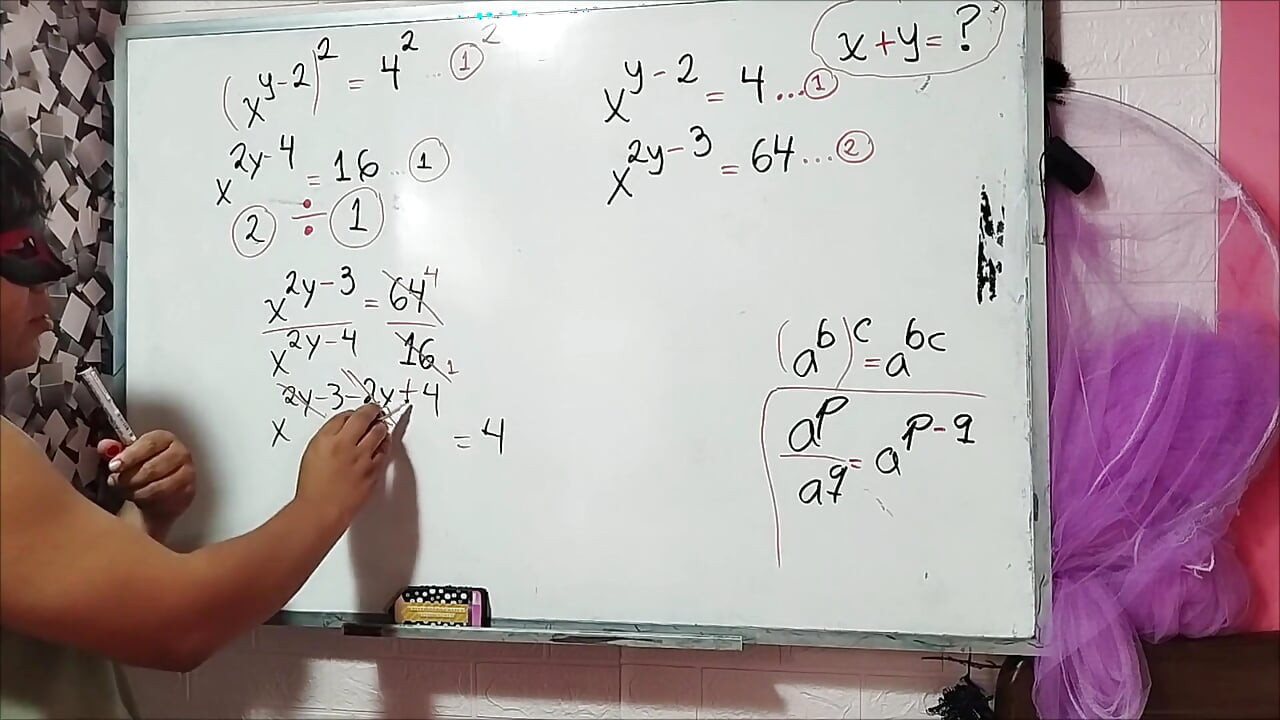 (x^{y-2})^2 = 4^2 ... ①^2
x^{2y-4} = 16 ... ①
② ÷ ①
x^{2y-3} = 64 4
x^{2y-4} 16 1
x^{2y-3-2y+4} = 4
x+y=?
x^{y-2} = 4 ... ①
x^{2y-3} = 64 ... ②
(a^b)^c = a^{bc}
a^p / a^q = a^{p-q}